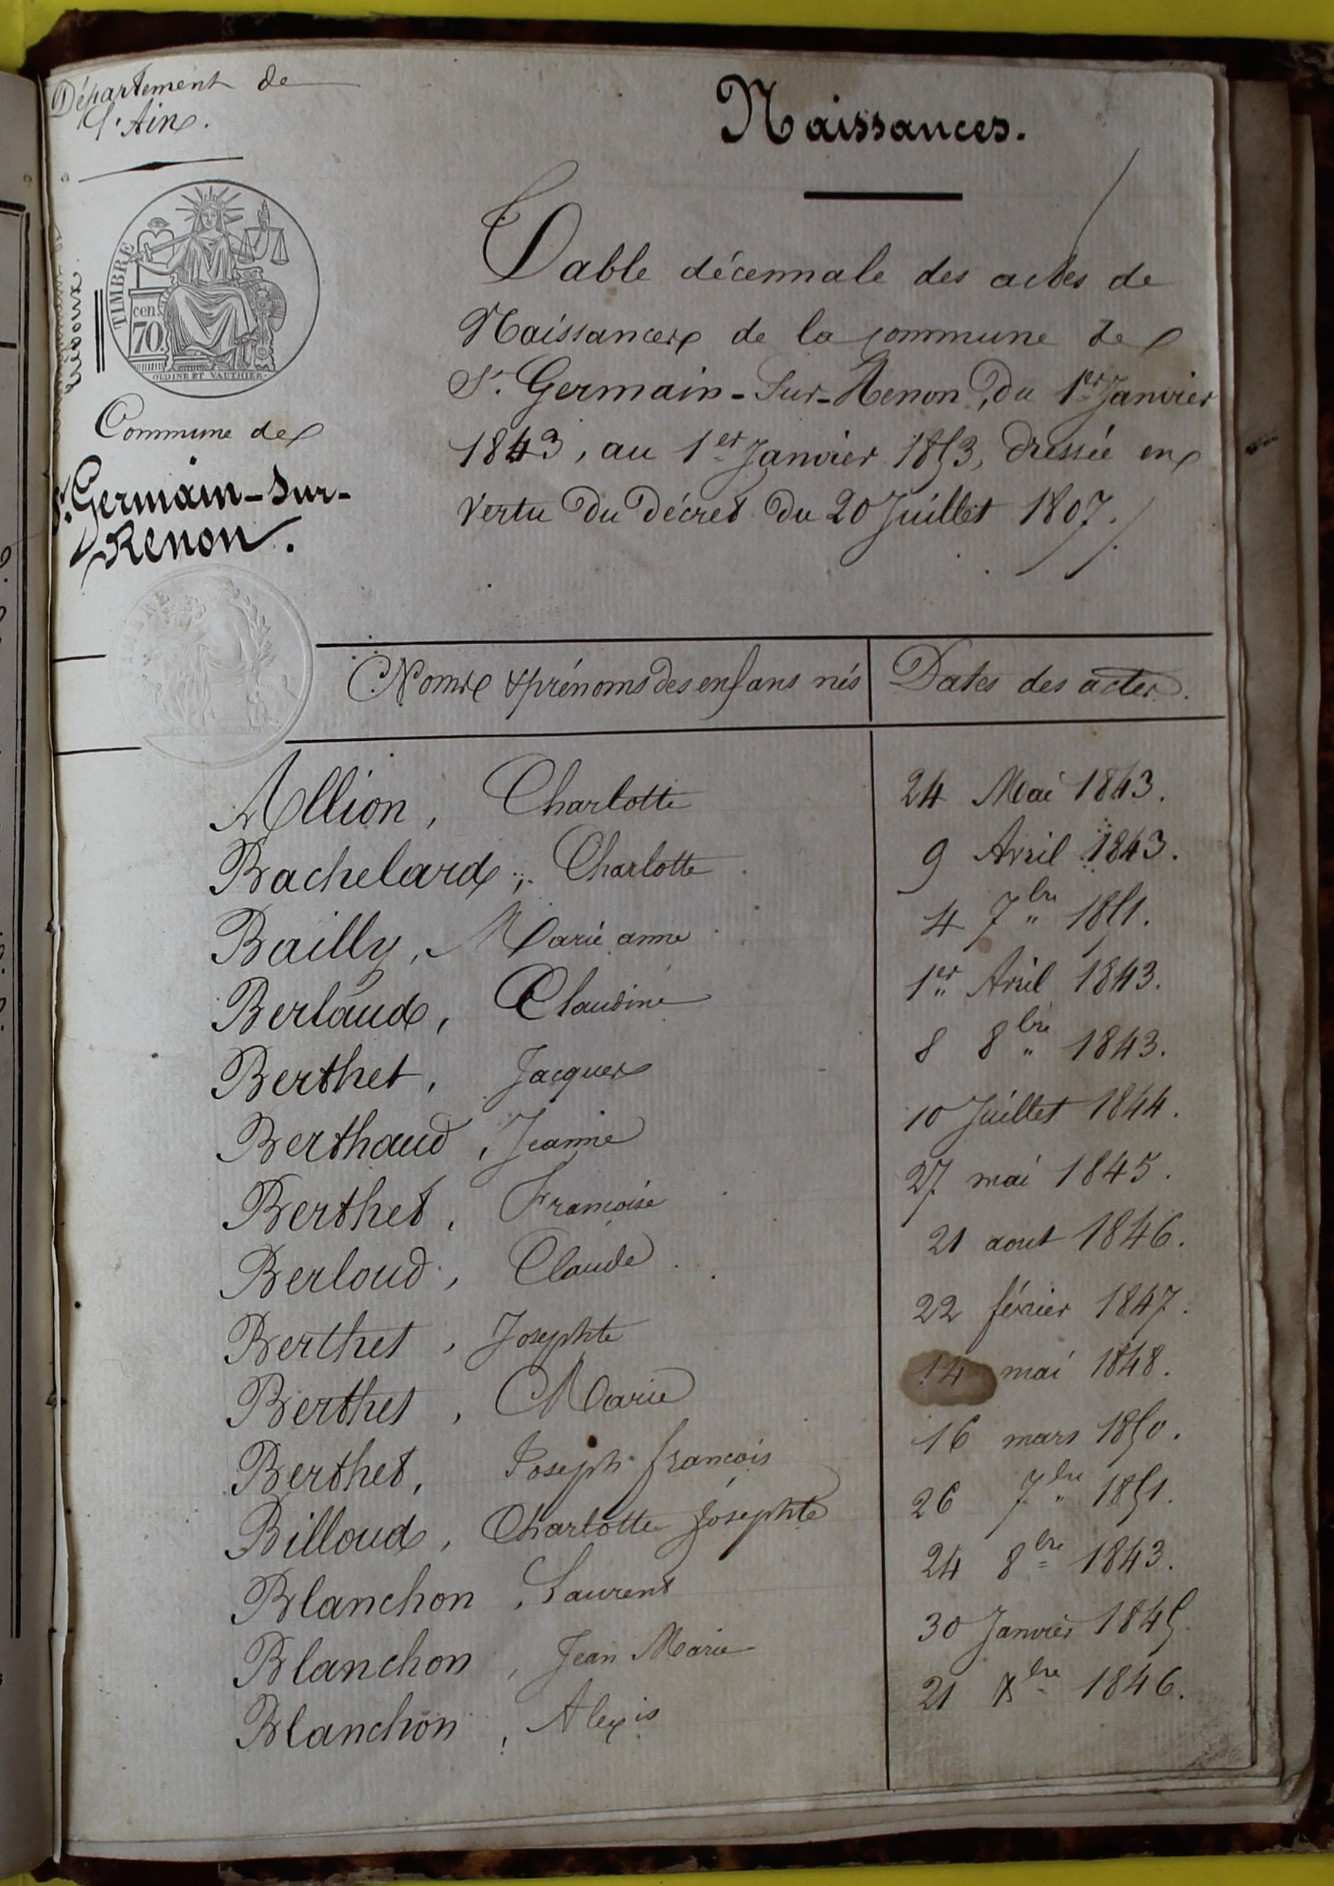 Département de
l'Ain.
Naissances.
TIMBRE
cen.
70
OUDINE ET VAUTHIER
Commune de
St. Germain-Sur-
Renon.
Table décennale des actes de
Naissances de la commune de
St. Germain-Sur-Renon, du 1er Janvier
1843, au 1er Janvier 1853, dressée en
vertu du décret du 20 Juillet 1807.
Noms & prénoms des enfans nés | Dates des actes.
Allion, Charlotte 24 Mai 1843.
Bachelard, Charlotte 9 Avril 1843.
Bailly, Marie anne 4 7bre 1851.
Bertaud, Claudine 1er Avril 1843.
Berthet, Jacques 8 8bre 1843.
Berthaud, Jeanne 10 Juillet 1844.
Berthet, Françoise 27 mai 1845.
Berloud, Claude 21 aout 1846.
Berthet, Josephte 22 février 1847.
Berthet, Marie 14 mai 1848.
Berthet, Joseph françois 16 mars 1850.
Billoud, Charlotte Josephte 26 7bre 1851.
Blanchon, Laurent 24 8bre 1843.
Blanchon, Jean Marie 30 Janvier 1845.
Blanchon, Alexis 21 Xbre 1846.